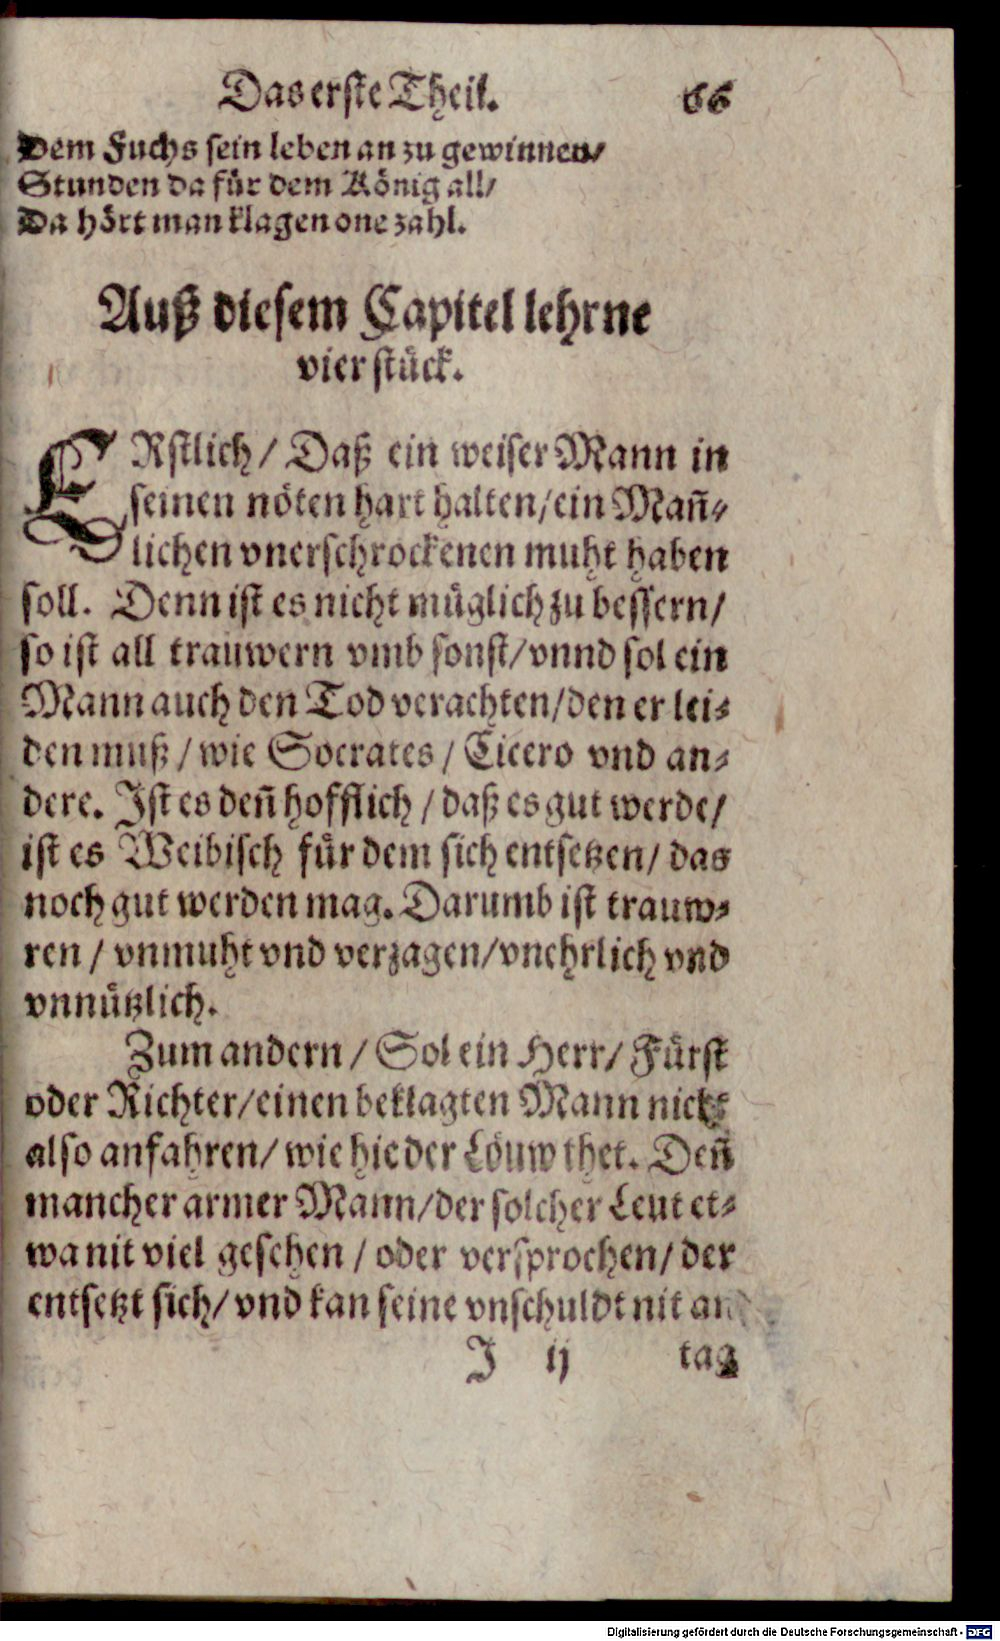 Das erste Theil. 66
Dem Fuchs sein leben an zu gewinnen/
Stunden da für dem König all/
Da hört man klagen one zahl.
Auß diesem Capitel lehrne
vier stück.
ERstlich / Daß ein weiser Mann in
seinen nöten hart halten/ein Mañ-
lichen vnerschrockenen muht haben
soll. Denn ist es nicht müglich zu bessern/
so ist all trauwern vmb sonst/vnnd sol ein
Mann auch den Tod verachten/den er lei-
den muß / wie Socrates / Cicero vnd an-
dere. Ist es deñ hofflich / daß es gut werde/
ist es Weibisch für dem sich entsetzen/ das
noch gut werden mag. Darumb ist trauw-
ren / vnmuht vnd verzagen/vnehrlich vnd
vnnützlich.
Zum andern / Sol ein Herr/ Fürst
oder Richter/einen beklagten Mann nicht
also anfahren/ wie hie der Löuw thet. Deñ
mancher armer Mann/der solcher Leut et-
wa nit viel gesehen / oder versprochen/ der
entsetzt sich/ vnd kan seine vnschuldt nit an
J ij tag
Digitalisierung gefördert durch die Deutsche Forschungsgemeinschaft - DFG